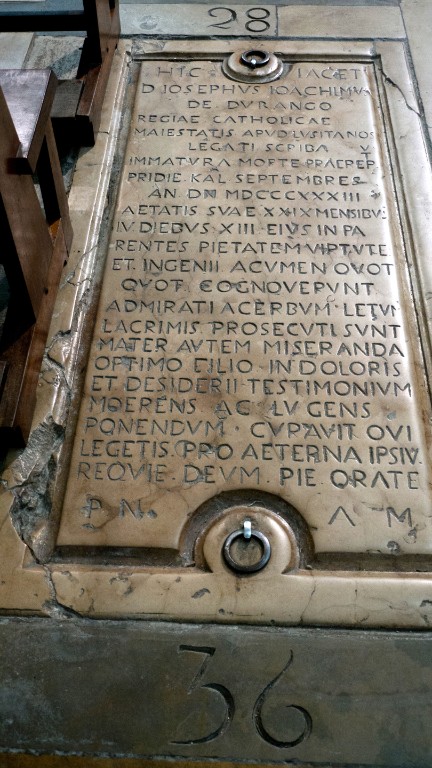 28
HIC IACET
D IOSEPHVS IOACHIMVS
DE DVRANGO
REGIAE CATHOLICAE
MAIESTATIS APVD LVSITANOS
LEGATI SCRIBA
IMMATVRA MORTE PRAEREP
PRIDIE KAL SEPTEMBRES
AN DNI MDCCCXXXIII
AETATIS SVAE XXIX MENSIBV
IV DIEBVS XIII EIVS IN PA
RENTES PIETATEM VIRTVTE
ET INGENII ACVMEN QVOT
QVOT COGNOVERVNT
ADMIRATI ACERBVM LETVM
LACRIMIS PROSECVTI SVNT
MATER AVTEM MISERANDA
OPTIMO FILIO IN DOLORIS
ET DESIDERII TESTIMONIVM
MOERENS AC LVGENS
PONENDVM CVRAVIT QVI
LEGETIS PRO AETERNA IPSIV
REQVIE DEVM PIE ORATE
P N. A M
36